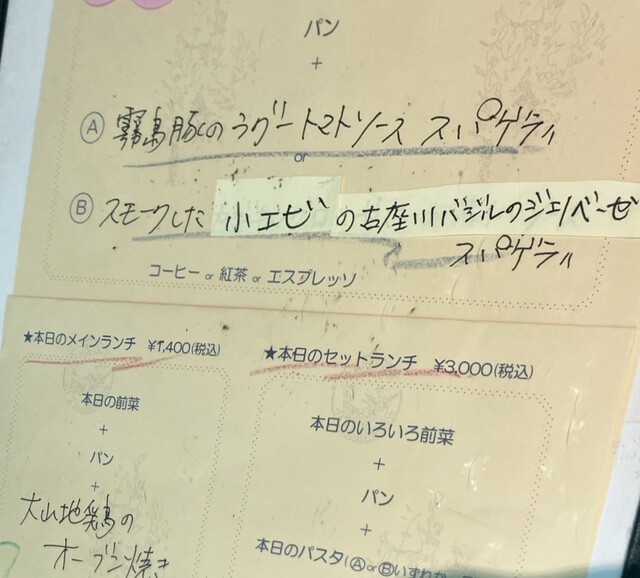 パン
+
Ⓐ 霧島豚のラグートマトソース スパゲティ
or
Ⓑ スモークした 小エビ の古座川バジルのジェノベーゼ
スパゲティ
コーヒー or 紅茶 or エスプレッソ
★本日のメインランチ ¥1,400(税込)
本日の前菜
+
パン
+
大山地鶏の
オーブン焼き
★本日のセットランチ ¥3,000(税込)
本日のいろいろ前菜
+
パン
+
本日のパスタ(ⒶorⒷいずれか